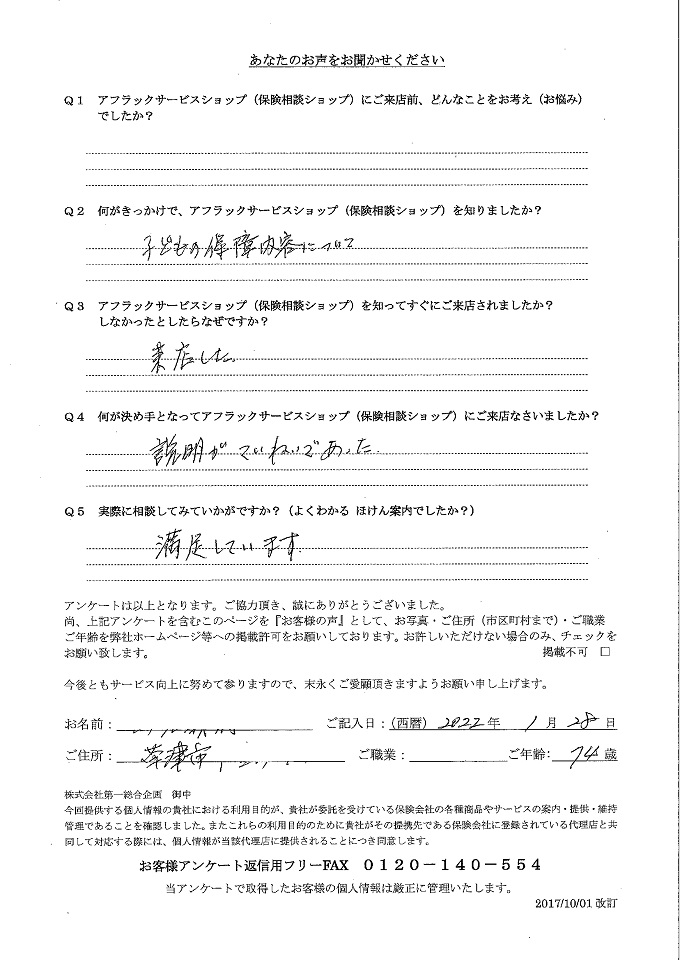 あなたのお声をお聞かせください
Q1 アフラックサービスショップ(保険相談ショップ)にご来店前、どんなことをお考え(お悩み)
でしたか?
Q2 何がきっかけで、アフラックサービスショップ(保険相談ショップ)を知りましたか?
子どもの保障内容について
Q3 アフラックサービスショップ(保険相談ショップ)を知ってすぐにご来店されましたか?
しなかったとしたらなぜですか?
来店した
Q4 何が決め手となってアフラックサービスショップ(保険相談ショップ)にご来店なさいましたか?
説明がていねいであった.
Q5 実際に相談してみていかがですか?(よくわかる ほけん案内でしたか?)
満足しています
アンケートは以上となります。ご協力頂き、誠にありがとうございました。
尚、上記アンケートを含むこのページを『お客様の声』として、お写真・ご住所(市区町村まで)・ご職業
ご年齢を弊社ホームページ等への掲載許可をお願いしております。お許しいただけない場合のみ、チェックを
お願い致します。 掲載不可 □
今後ともサービス向上に努めて参りますので、末永くご愛顧頂きますようお願い申し上げます。
お名前: ご記入日:(西暦) 2022 年 1 月 28 日
ご住所: 草津市 ご職業: ご年齢: 74 歳
株式会社第一総合企画 御中
今回提供する個人情報の貴社における利用目的が、貴社が委託を受けている保険会社の各種商品やサービスの案内・提供・維持
管理であることを確認しました。またこれらの利用目的のために貴社がその提携先である保険会社に登録されている代理店と共
同して対応する際には、個人情報が当該代理店に提供されることにつき同意します。
お客様アンケート返信用フリーFAX 0120-140-554
当アンケートで取得したお客様の個人情報は厳正に管理いたします。
2017/10/01 改訂